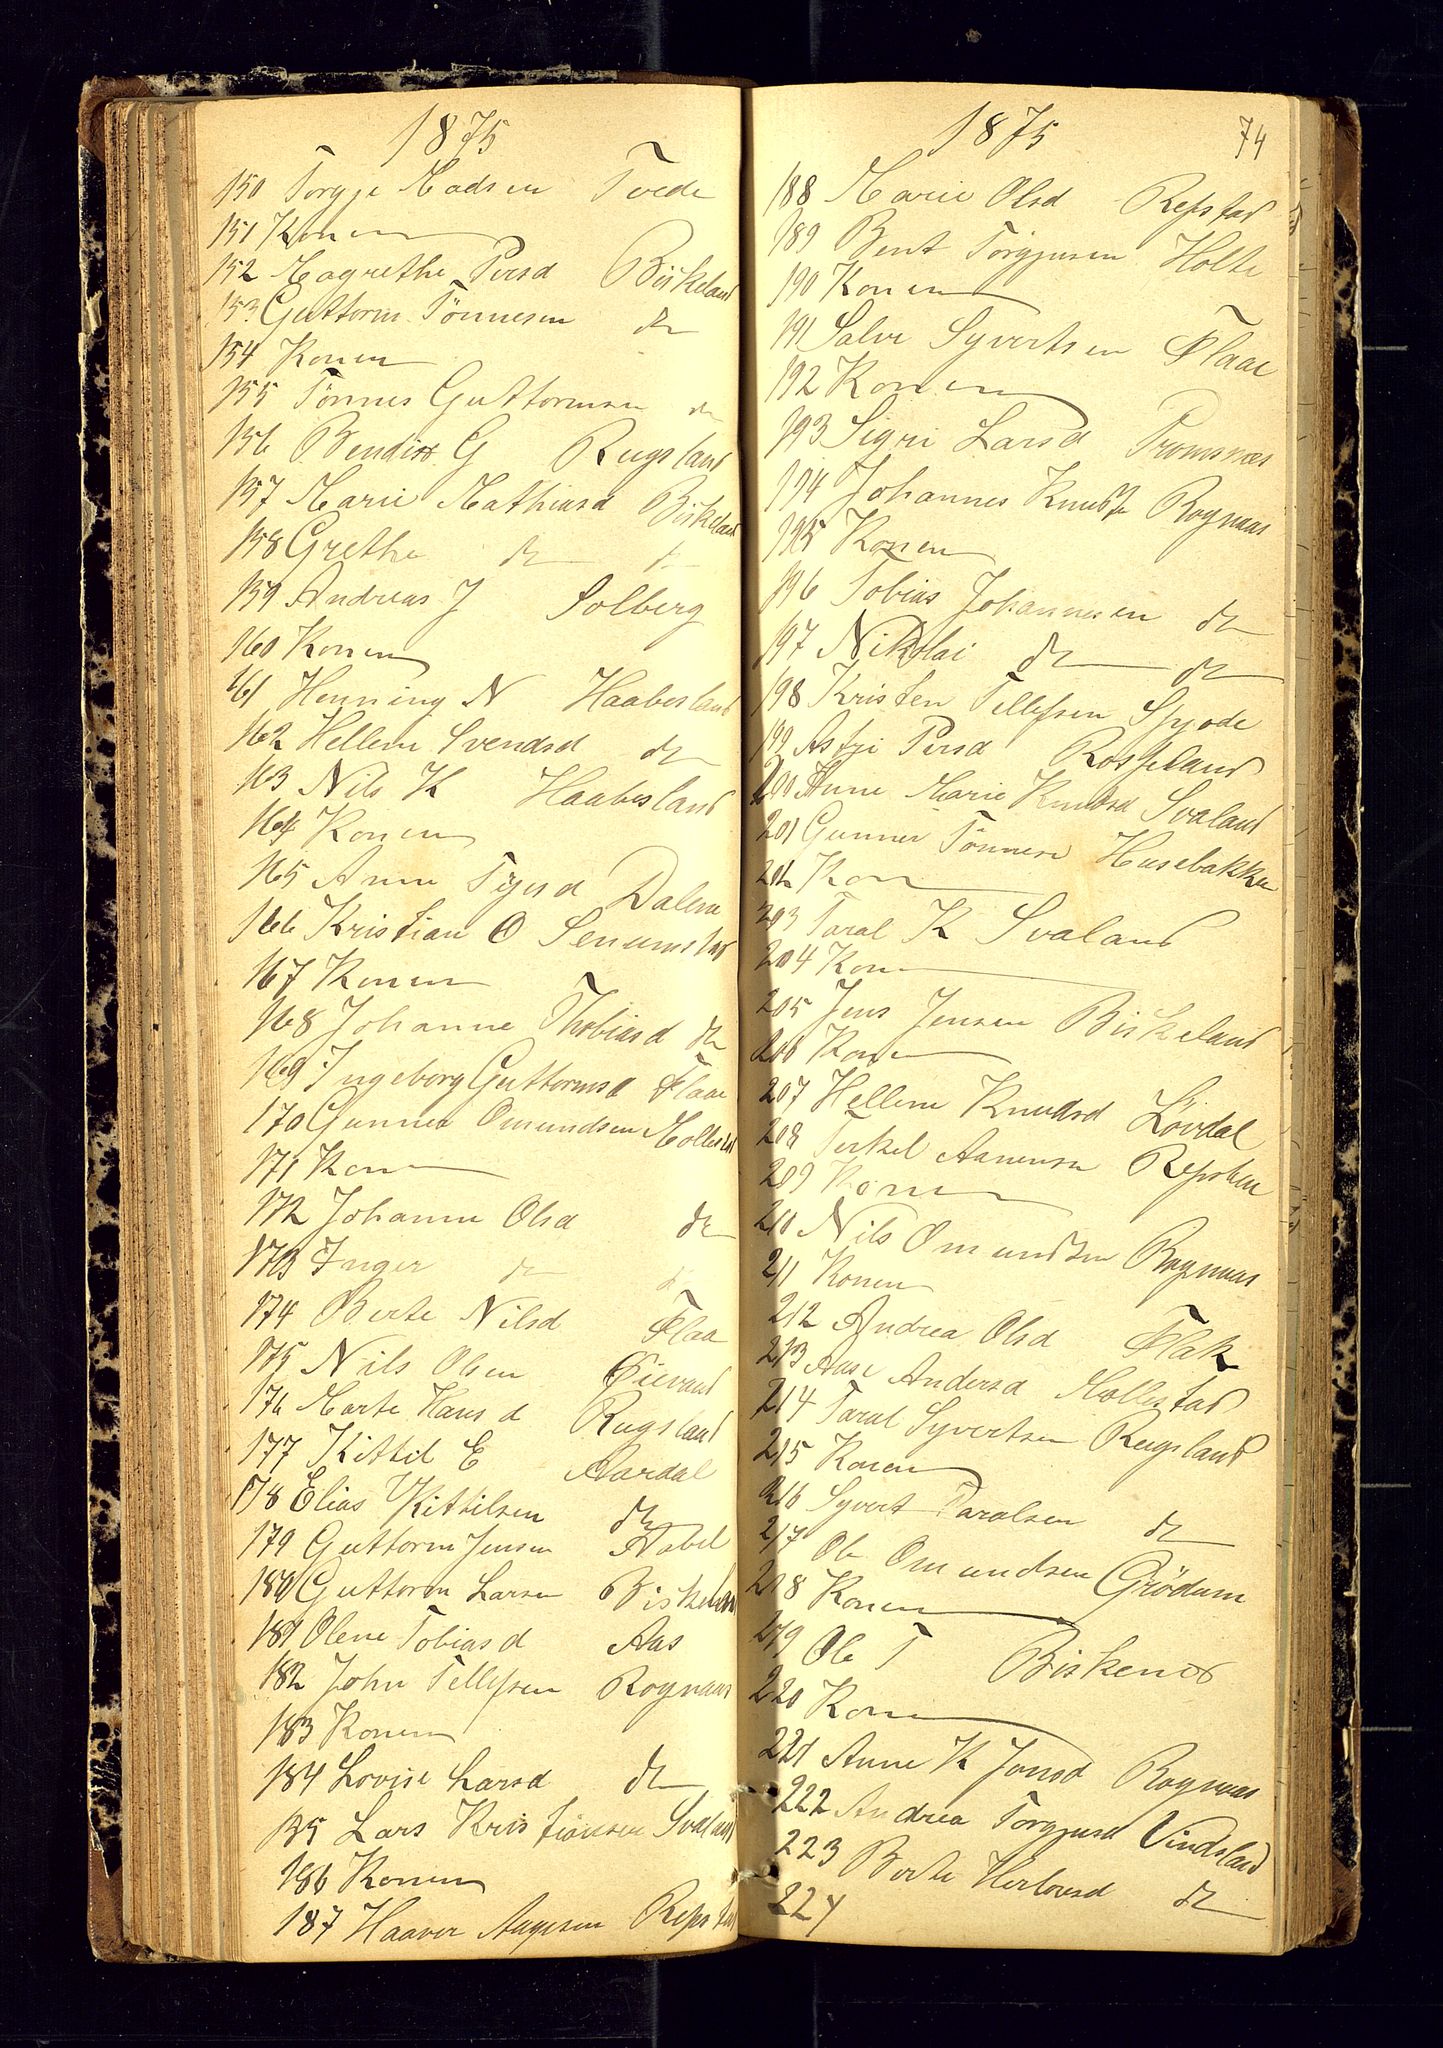 1875
150 Torgje Madsen Tvede
151 Konen
152 Magrethe Persd Birkeland
153 Guttorm Tönnesen do
154 Konen
155 Tönnes Guttormsen do
156 Bendix G Rugsland
157 Marie Mathiasd Birkeland
158 Grethe do do
159 Andreas J Solberg
160 Konen
161 Henning N Haabesland
162 Hellene Svendsd do
163 Nils K Haabesland
164 Konen
165 Anne Dalene
166 Kristian O Senumstad
167 Konen
168 Johanne Thobiasd do
169 Ingeborg Guttormsd Flaae
170 Gunner Omundsen Mollestad
171 Konen
172 Johanne Olsd do
173 Inger do do
174 Berte Nilsd Flaa
175 Nils Olsen Oievand
176 Marte Hansd Rugsland
177 Kittil E Aardal
178 Elias Kittilsen do
179 Guttorm Jensen Abel
180 Guttorm Larsen Birkeland
181 Olene Tobiasd Aas
182 John Tellefsen Rognaas
183 Konen
184 Lovise Larsd do
185 Lars Kristiansen Svaland
186 Konen
187 Haaver Aagesen Repstad
1875 74
188 Marie Olsd Repstad
189 Bent Torgjusen Holte
190 Konen
191 Salve Syvertsen Flaae
192 Konen
193 Sigri Larsd Tromsnæs
194 Johannes Rognaas
195 Konen
196 Tobias Johannesen do
197 Nikolai do do
198 Kristen Tellefsen
199 Asfri Persd Rosseland
200 Anne Marie Knudsd Svaland
201 Gunner Tönnesen Husebakken
202 Kon
203 Taral K Svaland
204 Kone
205 Jens Jensen Birkeland
206 Konen
207 Hellene Knudsd Lövdal
208 Terkel Aanensen
209 Konen
210 Nils Omundsen Rognaas
211 Konen
212 Andrea Olsd Flak
213 Aase Andersd Mollestad
214 Taral Syvertsen Rugsland
215 Konen
216 Syvert Taralsen do
217 Ole Omundsen Grödum
218 Konen
219 Ole T
220 Konen
221 Anne K Jonsd Rognaas
222 Andrea Torgjusd Vindsland
223 Berte Herlovsd do
224